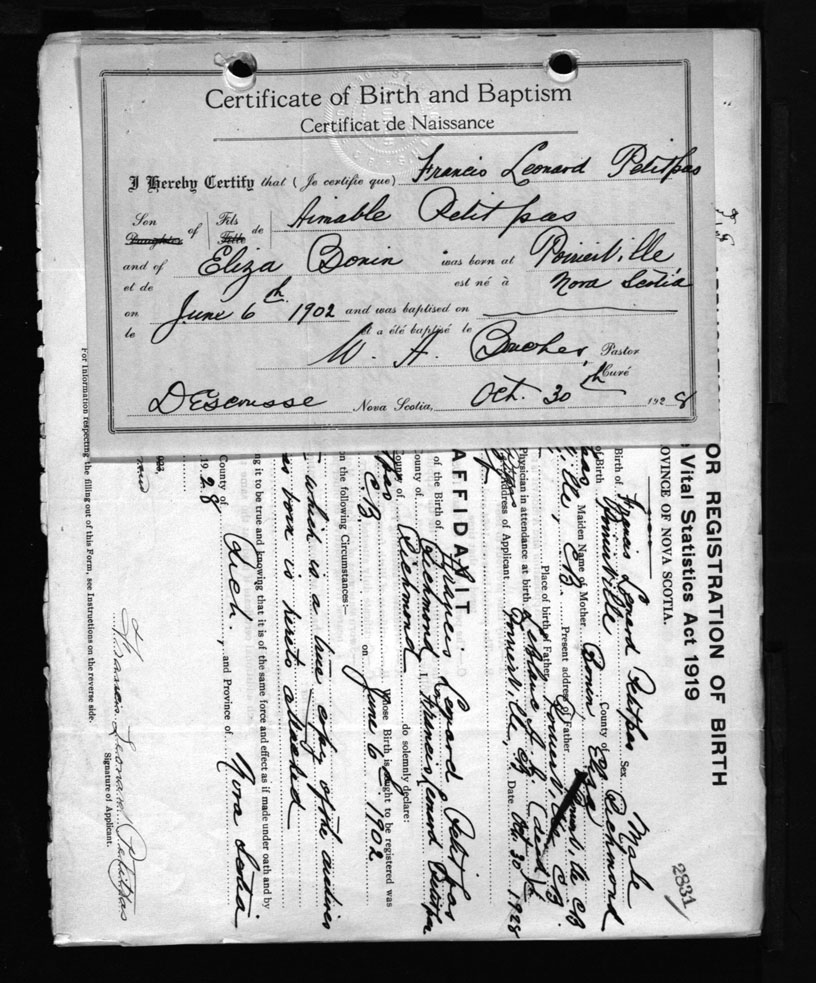 Certificate of Birth and Baptism
Certificat de Naissance
I Hereby Certify that (Je certifie que) Francis Leonard Petitpas
Son Daughter of Fils Fille de Aimable Petitpas
and of Eliza Bonin was born at Poirierville
et de est né à Nova Scotia
on June 6th 1902 and was baptised on
le et a été baptisé le
W. A. Boucher, Pastor
Curé
D'Escousse Nova Scotia, Oct. 30th 1928
OR REGISTRATION OF BIRTH
Vital Statistics Act 1919
OVINCE OF NOVA SCOTIA.
2831
Birth of Francis Leonard Petitpas Sex Male
of Birth Poirierville County of Richmond
Maiden Name of Mother Bonin Eliza
ville CB. Present address of Father Poirierville CB
Place of birth of Father Poirierville CB.
Physician in attendance at birth
Address of Applicant Poirierville, CB Date Oct 30 1928
AFFIDAVIT
of the Birth of Francis Leonard Petitpas
County of Richmond I, Francis Leonard Petitpas
County of Richmond do solemnly declare:
pas whose Birth is sought to be registered was
C.B. on June 6 1902
n the following Circumstances:—
which is a true copy of the
is hereto attached
ng it to be true and knowing that it is of the same force and effect as if made under oath and by
County of Rich. , and Province of Nova Scotia
1928
Francis Leonard Petitpas
Signature of Applicant.
For Information respecting the filling out of this Form, see Instructions on the reverse side.